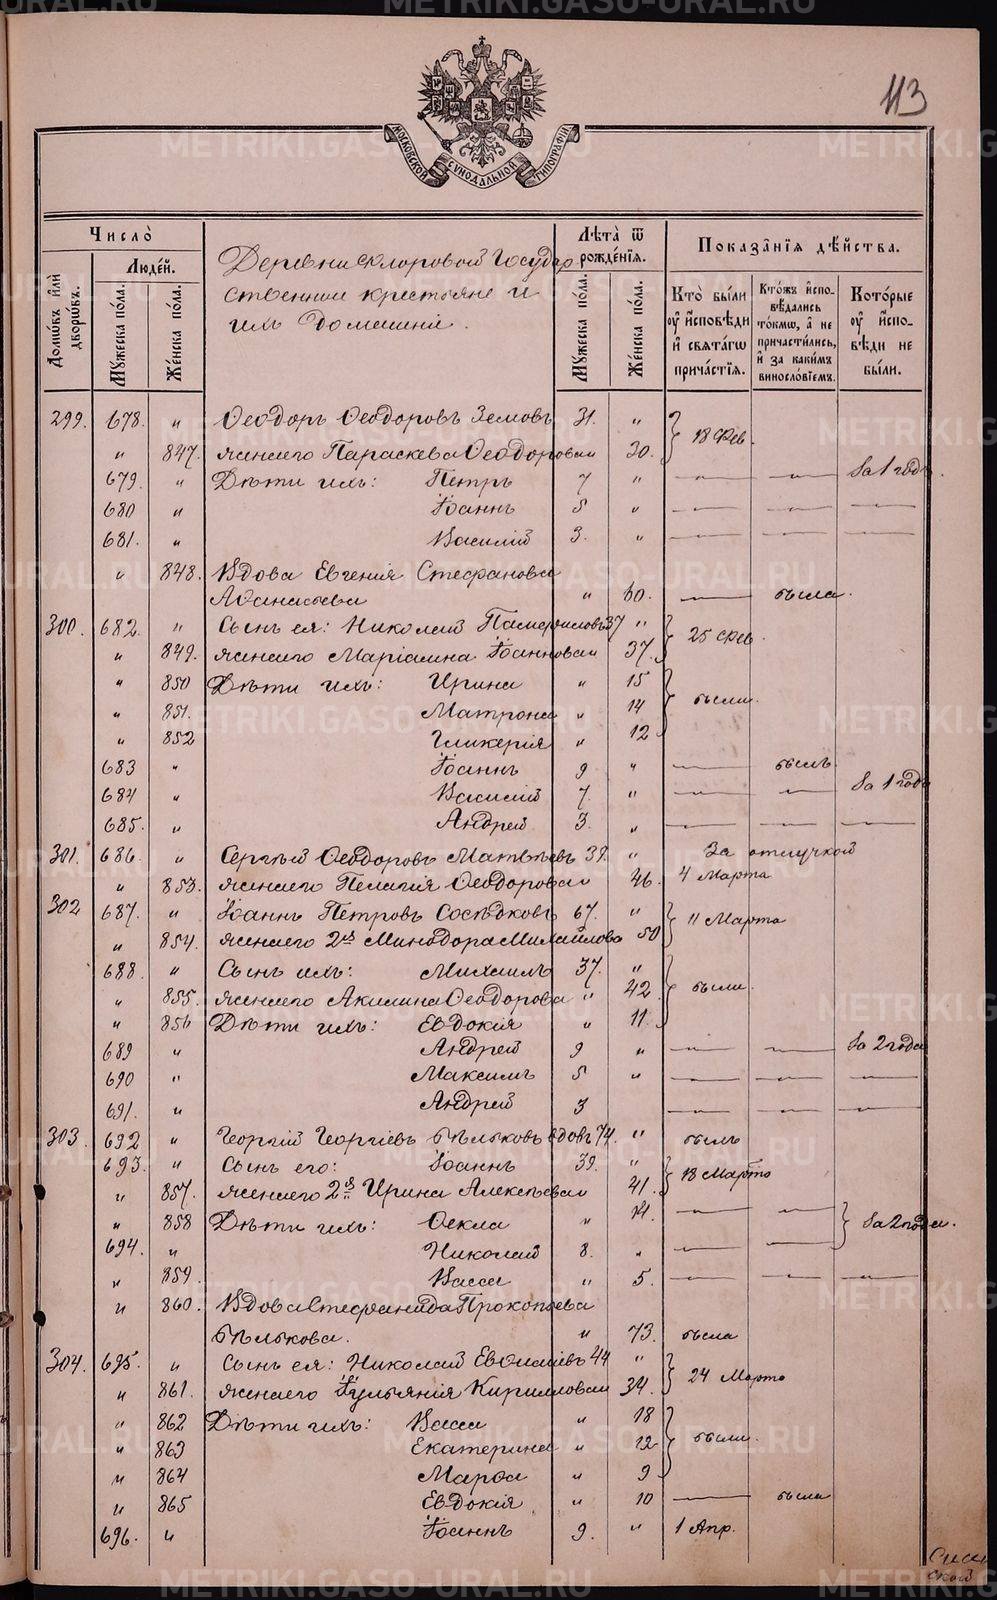 113
МОСКОВСКОЙ СѴНОДАЛЬНОЙ ТИПОГРАФІИ
Число̀
Людей.
Домѡвъ илѝ дворѡвъ.
Мꙋжеска пола.
Женска пола.
Деревни Скморовой Государ
ственнии крестьяне и
ихъ домашніе.
Лѣта ѿ рожденїѧ.
Мꙋжеска пола.
Женска пола.
Показанїѧ дѣйства.
Кто̀ были ᲂу҆ исповѣди и свѧтагѡ причастїѧ.
Ктожъ исповѣдались токмѡ, а не причастились, и за какимъ винословїемъ.
Которые ᲂу҆ исповѣди не были.
299. 678. " Ѳеодоръ Ѳеодоровъ Земовъ 31. " 18 Фев.
" 847. жена его Параскева Ѳеодорова 30.
679. " Дѣти ихъ: Петръ 7 " — — За 1 годъ.
680 " Іоаннъ 5 " — — —
681. " Василій 3. " — — —
" 848. Вдова Евгенія Стефанова
Аѳанасьева " 60. — была.
300. 682. " Сынъ ея: Николай Памфиловъ 37 " 25 Фев.
" 849. жена его Маріамна Іоаннова 37.
" 850 Дѣти ихъ: Ирина " 15 были.
" 851. Матрона " 14
" 852 Гликерія " 12
683 " Іоаннъ 9 " — былъ.
684 " Василій 7. " — — За 1 годъ
685. " Андрей 3. " — — —
301. 686. " Сергѣй Ѳеодоровъ Матвѣевъ 39. " За отлучкой
" 853. жена его Пелагія Ѳеодорова 46. 4 Марта
302 687. " Іоаннъ Петровъ Сосѣдковъ 67. " 11 Марта
" 854. жена его 2я Минодора Михайлова 50
688. " Сынъ ихъ: Михаилъ 37. " были.
" 855. жена его Акилина Ѳеодорова " 42
" 856 Дѣти ихъ: Евдокія " 11.
689 " Андрей 9 " — — За 2 года
690 " Максимъ 5 " — — —
691. " Андрей 3 — — —
303. 692 " Георгій Георгіевъ Бѣльковъ вдовъ 74. " былъ
693. " Сынъ его: Іоаннъ 39. " 18 Марта
" 857. жена его 2я Ирина Алексѣева 41.
" 858 Дѣти ихъ: Ѳекла " 14. — — За 2 года.
694. " Николай 8. " — —
" 859. Васса " 5. — — —
" 860. Вдова Стефанида Прокопьева
Бѣлькова. " 73. была
304. 695. " Сынъ ея: Николай Евѳиміевъ 44 " 24 Марта
" 861. жена его Іульянія Кириллова 34.
" 862 Дѣти ихъ: Васса " 18 были.
" 863 Екатерина " 12
" 864 Марѳа " 9
" 865 Евдокія " 10 — была
696. " Іоаннъ 9. " 1 Апр.
METRIKI.GASO-URAL.RU